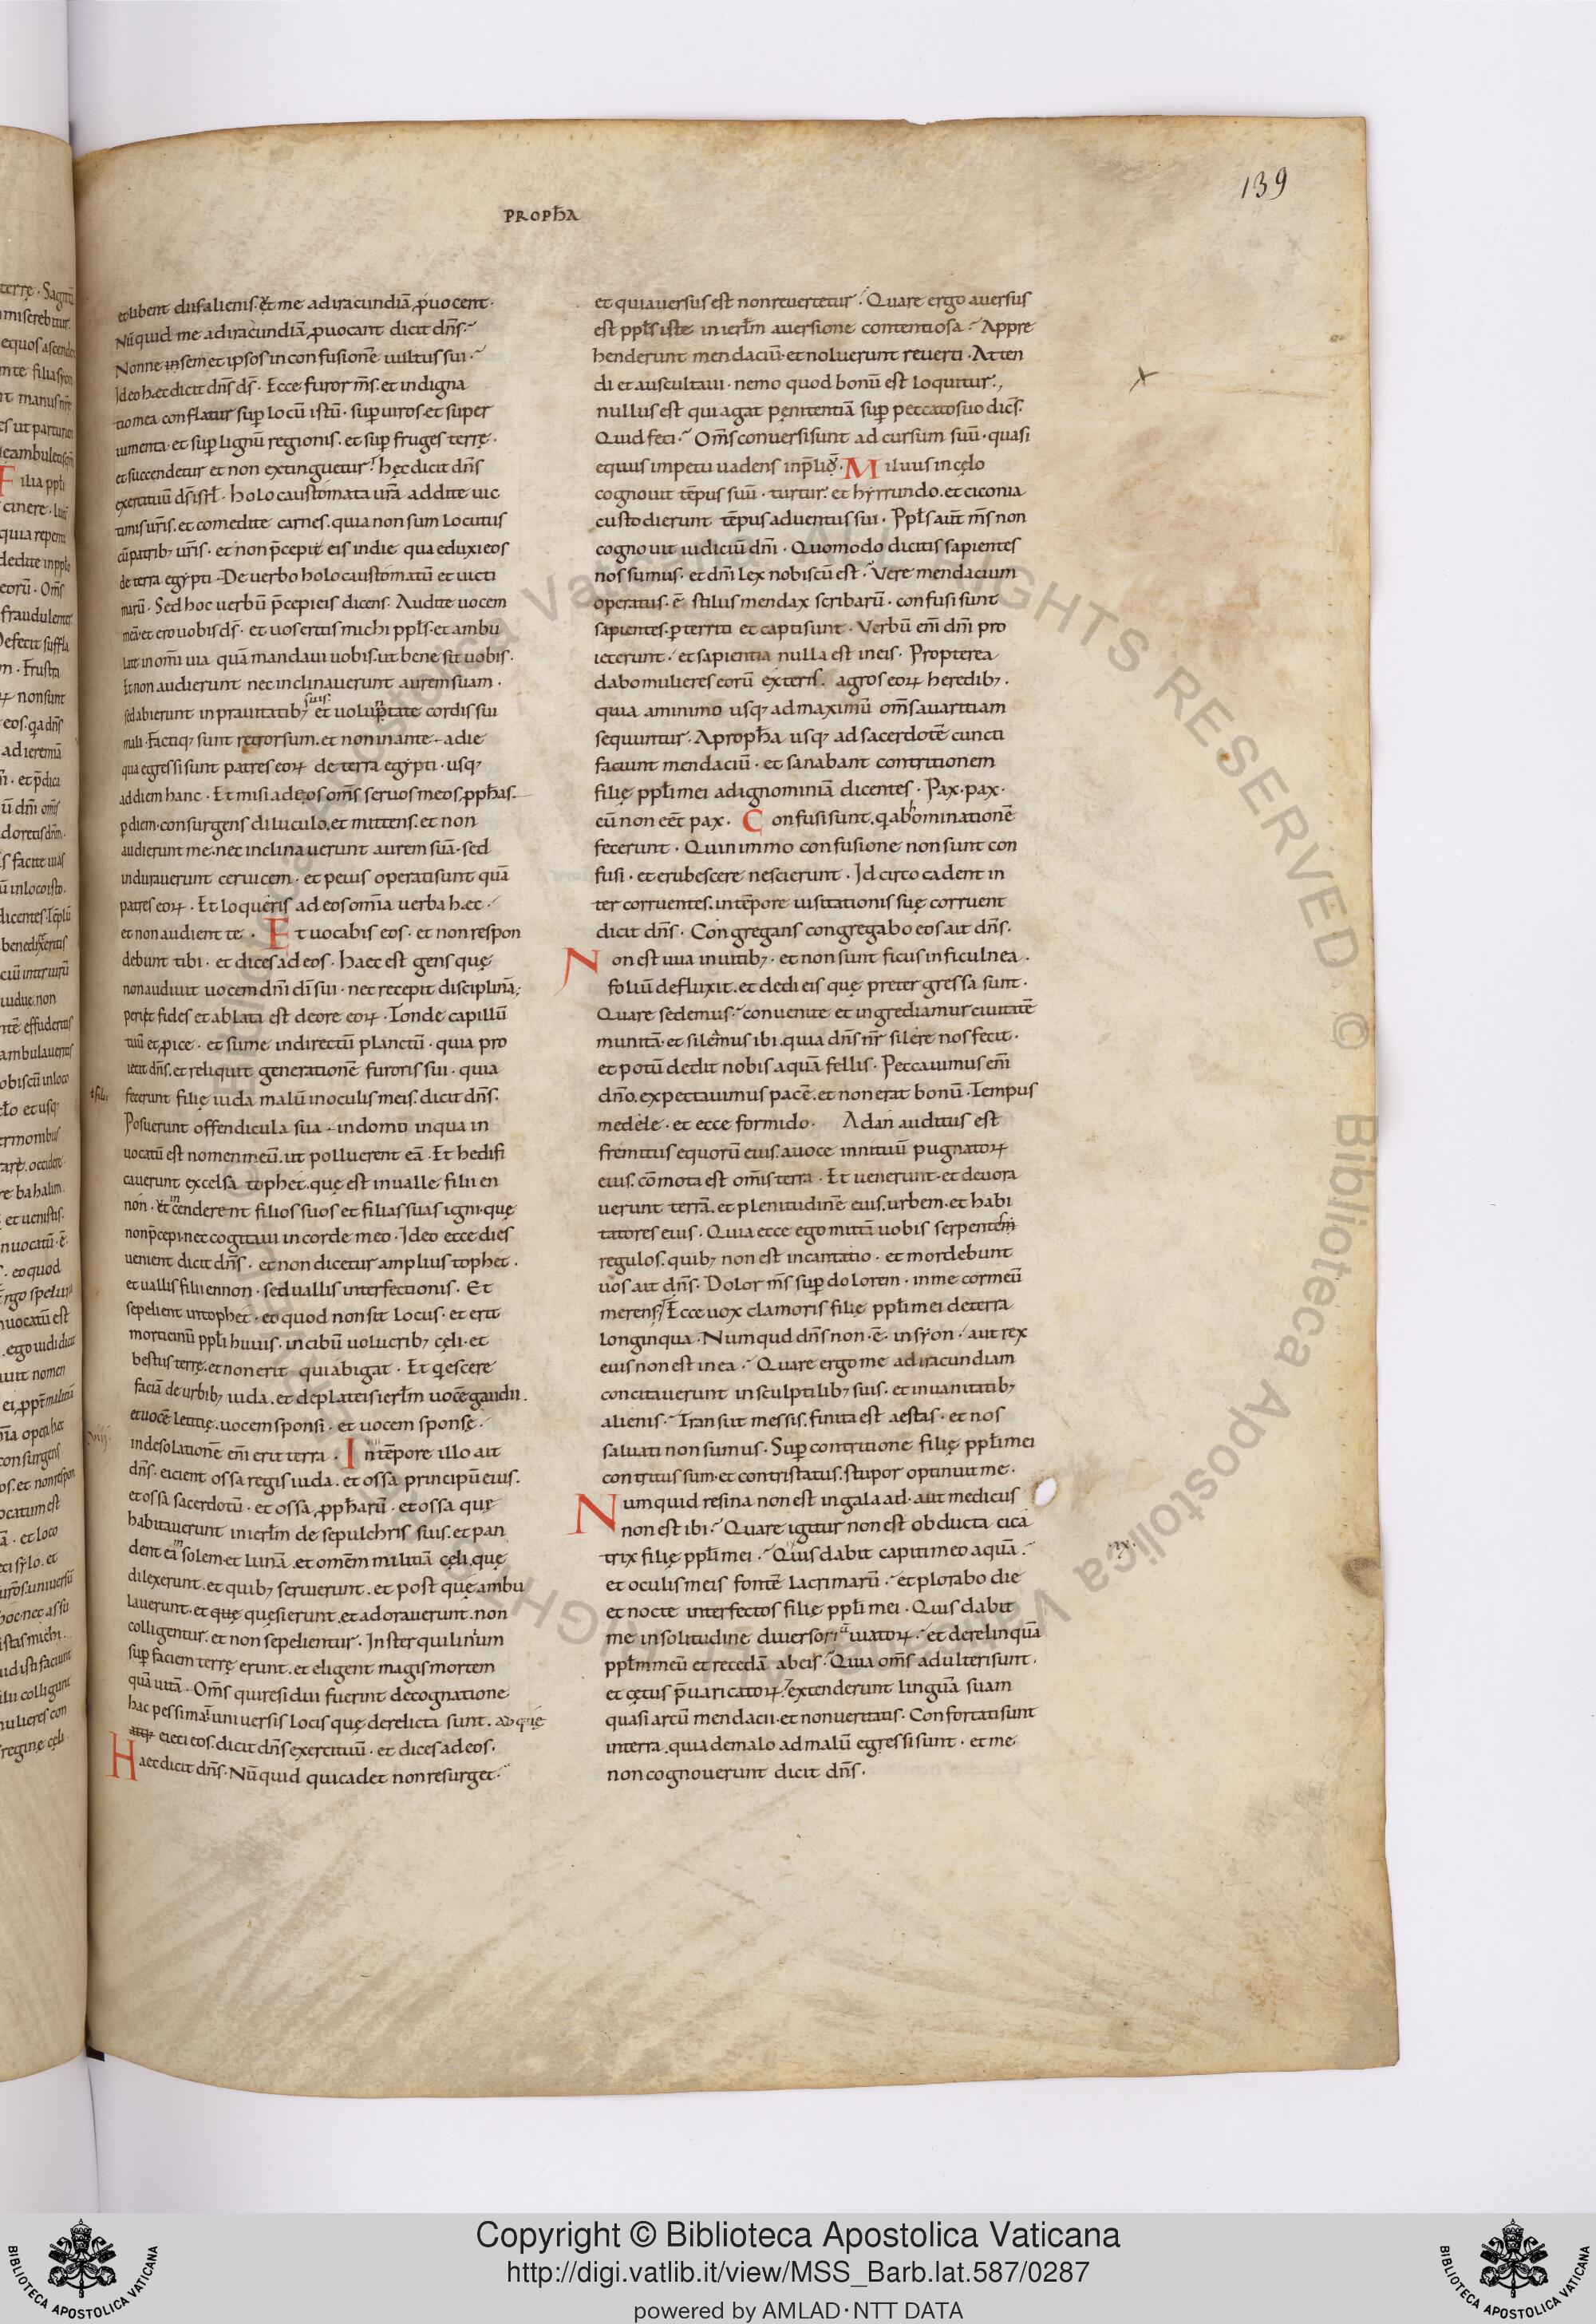 139
PROPHA
et libent diis alienis. et me ad iracundiā ꝓuocent.
Nūquid me ad iracundiā ꝓuocant dicit dn̄s.
Nonne in semet ipsos in confusionē uultus sui.
Ideo hæc dicit dn̄s ds̄. Ecce furor m̄s. et indigna
tio mea conflatur suꝑ locū istū. suꝑ uiros. et super
iumenta. et suꝑ lignū regionis. et suꝑ fruges terrę.
et succendetur et non extinguetur. hęc dicit dn̄s
exercituū ds̄ isrł. holocaustomata ur̄a addite uic
timis ur̄is. et comedite carnes. quia non sum locutus
cū patribꝫ ur̄is. et non p̄cepi eis in die qua eduxi eos
de terra egypti. De uerbo holocaustomatū et uicti
marū. Sed hoc uerbū p̄cepi eis dicens. Audite uocem
meā. et ero uobis ds̄. et uos eritis michi ppłs. et ambu
late in om̄i uia quā mandaui uobis. ut bene sit uobis.
Et non audierunt nec inclinauerunt aurem suam.
sed abierunt in prauitatibꝫ suis. et uoluptate cordis sui
mali. Factiqꝫ sunt retrorsum. et non in ante. a die
qua egressi sunt patres eoꝝ de terra egypti. usqꝫ
ad diem hanc. Et misi ad eos om̄s seruos meos ꝓphas.
ꝑ diem. consurgens diluculo. et mittens. et non
audierunt me. nec inclinauerunt aurem suā. sed
indurauerunt ceruicem. et peius operati sunt quā
patres eoꝝ. Et loqueris ad eos om̄ia uerba hæc.
et non audient te. Et uocabis eos. et non respon
debunt tibi. et dices ad eos. haec est gens quę
non audiuit uocem dn̄i dī sui. nec recepit disciplinā;
periit fides et ablata est de ore eoꝝ. Tonde capillū
tuū et ꝓice. et sume in directū planctū. quia pro
iecit dn̄s. et reliquit generationē furoris sui. quia
fecerunt filię iuda malū in oculis meis. dicit dn̄s.
Posuerunt offendicula sua. in domo in qua in
uocatū est nomen meū. ut polluerent eā. Et hedifi
cauerunt excelsa tophet. que est in ualle filii en
non. et incenderent filios suos et filias suas igni. quę
non p̄cepi. nec cogitaui in corde meo. Ideo ecce dies
uenient dicit dn̄s. et non dicetur amplius tophet.
et uallis filii ennon. sed uallis interfectionis. Et
sepelient in tophet. eo quod non sit locus. et erit
morticinū ppłi huius. in cibū uolucribꝫ cęli. et
bestiis terrę. et non erit qui abigat. Et q̇escere
faciā de urbibꝫ iuda. et de plateis ierłm uocē gaudii.
et uocē letitię. uocem sponsi. et uocem sponsę.
in desolationē enī erit terra. In tēpore illo ait
dn̄s. eicient ossa regis iuda. et ossa principū eius.
et ossa sacerdotū. et ossa ꝓpharū. et ossa quę
habitauerunt in ierłm de sepulchris suis. et pan
dent ea solem et lunā. et omēm militiā cęli. quę
dilexerunt. et quibꝫ seruierunt. et post quę ambu
lauerunt. et quę quęsierunt. et adorauerunt. non
colligentur. et non sepelientur. In sterquilinium
suꝑ faciem terrę erunt. et eligent magis mortem
quā uitā. Om̄s qui residui fuerint de cognatione
hac pessima. in uniuersis locis quę derelicta sunt. ad quę
eieci eos. dicit dn̄s exercituū. et dices ad eos.
Haec dicit dn̄s. Nūquid qui cadet non resurget.
et qui auersus est non reuertetur. Quare ergo auersus
est ppłs iste in ierłm auersione contentiosa. Appre
henderunt mendaciū. et noluerunt reuerti. Atten
di et auscultaui. nemo quod bonū est loquitur.,
nullus est qui agat pęnitentiā suꝑ peccato suo dic̄s.
Quid feci. Om̄s conuersi sunt ad cursum suū. quasi
equus impetu uadens in p̄liū. Miluus in cęlo
cognouit tēpus suū. turtur. et hyrrundo. et ciconia
custodierunt tēpus aduentus sui. Ppłs aūt m̄s non
cognouit iudiciū dn̄i. Quomodo dicitis sapientes
nos sumus. et dn̄i lex nobiscū est. Vere mendacium
operatus. ē stilus mendax scribarū. confusi sunt
sapientes. ꝑterriti et capti sunt. Verbū enī dn̄i pro
iecerunt. et sapientia nulla est in eis. Propterea
dabo mulieres eorū exteris. agros eoꝝ heredibꝫ.
quia a minimo usqꝫ ad maximū om̄s auaritiam
sequuntur. A propha usqꝫ ad sacerdotē cuncti
faciunt mendaciū. et sanabant contritionem
filię ppłi mei ad ignominiā dicentes. Pax. pax.
cū non eēt pax. Confusi sunt. q̇ abhominationē
fecerunt. Quin immo confusione non sunt con
fusi. et erubescere nescierunt. Idcirco cadent in
ter corruentes. in tēpore uisitationis suę corruent
dicit dn̄s. Congregans congregabo eos ait dn̄s.
Non est uua in uitibꝫ. et non sunt ficus in ficulnea.
foliū defluxit. et dedi eis quę preter gressa sunt.
Quare sedemus. conuenite et ingrediamur ciuitatē
munitā. et silemus ibi. quia dn̄s nr̄ silere nos fecit.
et potū dedit nobis aquā fellis. Peccauimus enī
dn̄o. expectauimus pacē. et non erat bonū. Tempus
medele. et ecce formido. A dan auditus est
fremitus equorū eius. a uoce innituū pugnatoꝝ
eius. cōmota est om̄is terra. Et uenerunt. et deuora
uerunt terrā. et plenitudinē eius. urbem. et habi
tatores eius. Quia ecce ego mittā uobis serpentes
regulos. quibꝫ non est incantatio. et mordebunt
uos ait dn̄s. Dolor m̄s suꝑ dolorem. in me cor meū
merens. Ecce uox clamoris filię ppłi mei de terra
longinqua. Numquid dn̄s non. ē. in syon. aut rex
eius non est in ea. Quare ergo me ad iracundiam
concitauerunt in sculptilibꝫ suis. et in uanitatibꝫ
alienis. Transiit messis. finita est aestas. et nos
saluati non sumus. Suꝑ contritione filię ppłi mei
contritus sum. et contristatus. stupor optinuit me.
Numquid resina non est in galaad. aut medicus
non est ibi. Quare igitur non est obducta cica
trix filię ppłi mei. Quis dabit capiti meo aquā.
.ix.
et oculis meis fontē lacrimarū. et plorabo die
et nocte interfectos filię ppłi mei. Quis dabit
me in solitudine diuersoria uiatoꝝ. et derelinquā
ppłm meū et recedā ab eis. Quia om̄s adulteri sunt.
et cętus p̄uaricatoꝝ. extenderunt linguā suam
quasi arcū mendacii. et non ueritatis. Confortati sunt
in terra. quia de malo ad malū egressi sunt. et me
non cognouerunt dicit dn̄s.
Copyright © Biblioteca Apostolica Vaticana
http://digi.vatlib.it/view/MSS_Barb.lat.587/0287
powered by AMLAD·NTT DATA